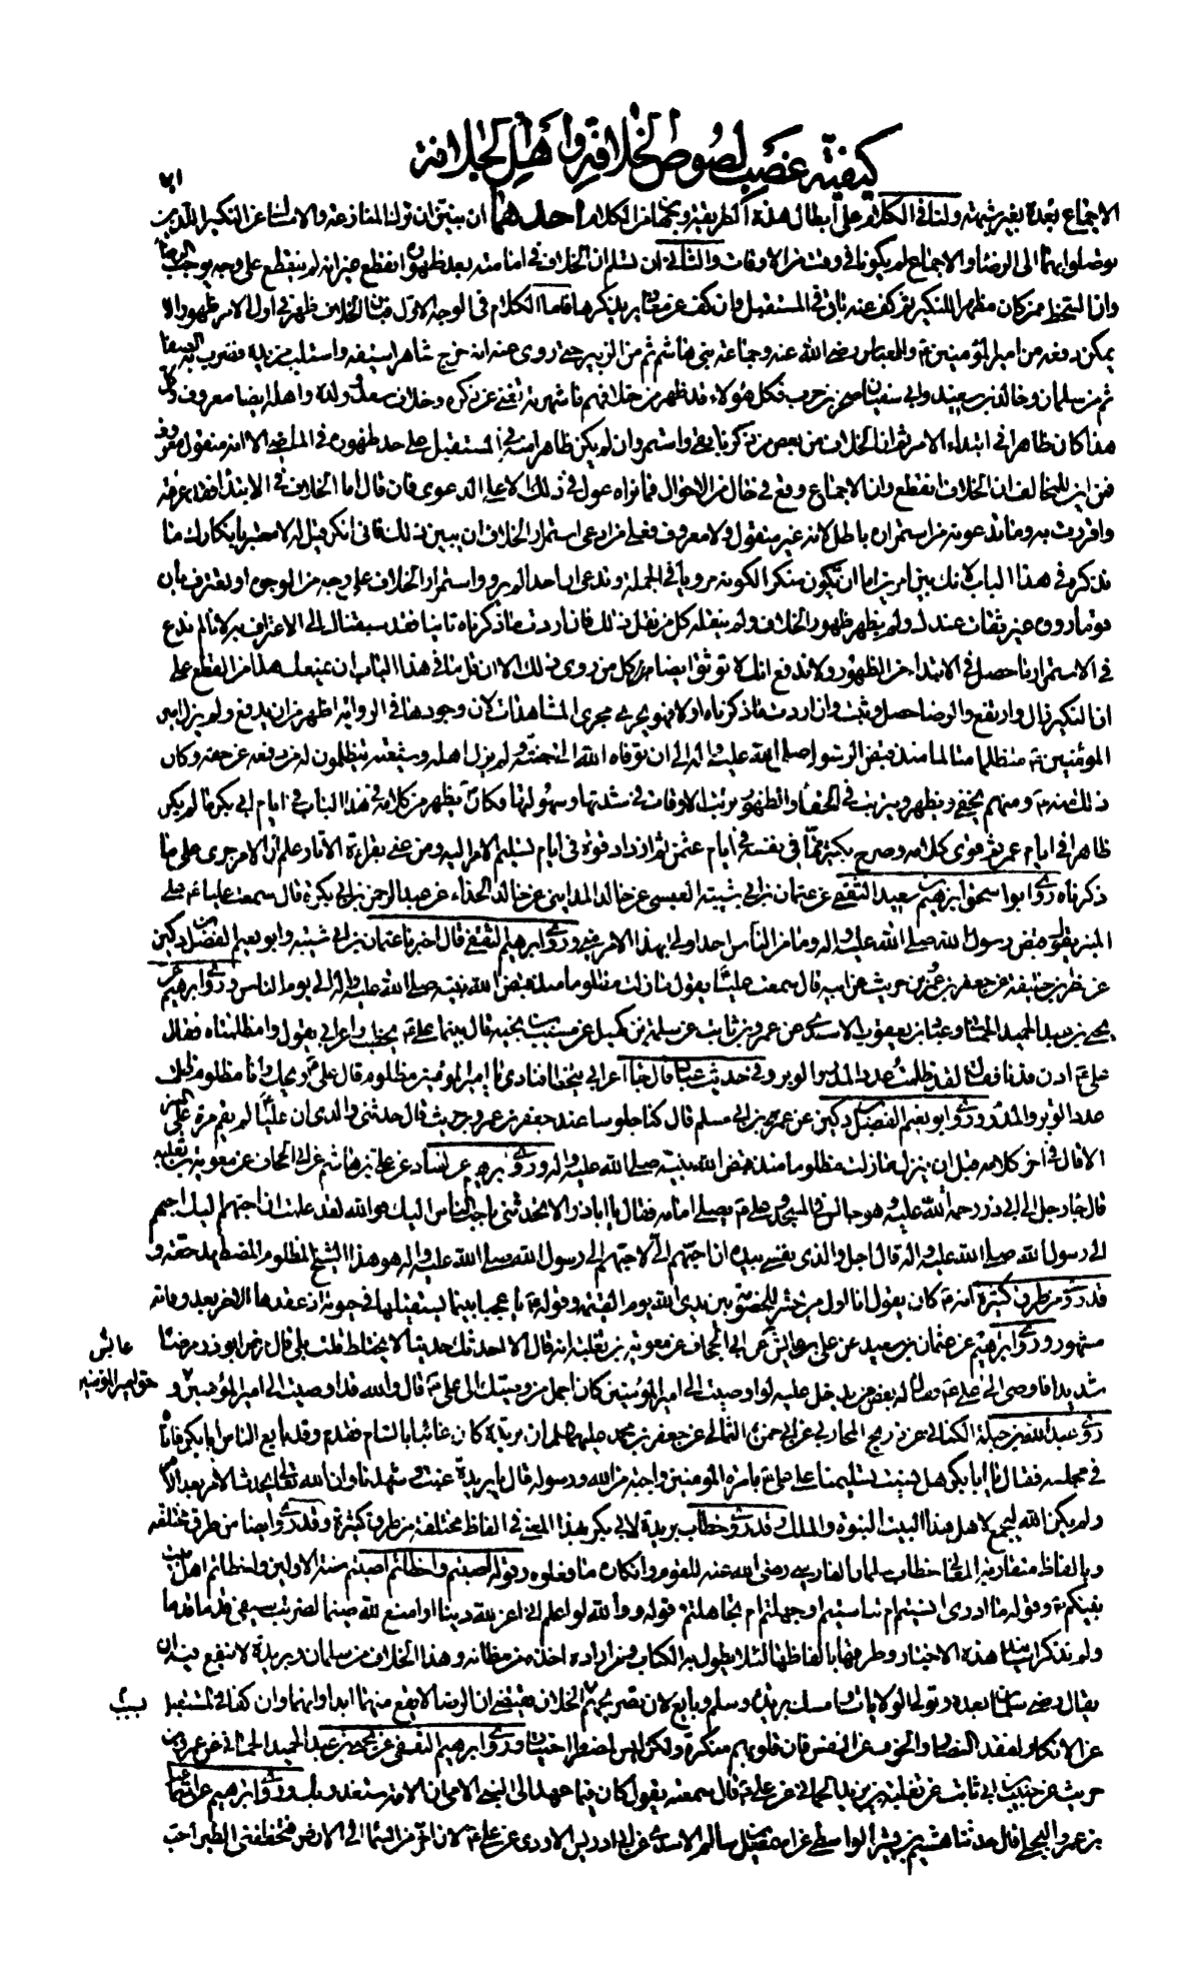 كيفية غصب لصوص الخلافة وأهل الجلافة
الاجماع بعده بغير شبهة ولنا في الكلام على ابطال هذه الطريقة وجهان من الكلام احدهما ان نبين ان ترك المنازعة والامساك عن النكير اللذين
توصلوا بهما الى الرضا والاجماع لم يكونا في وقت من الاوقات والثاني ان نسلم ان الخلاف في امامته بعد ظهوره انقطع غير انه لم ينقطع على وجه يوجب الرضا
وان السخط ممن كان مظهرا للنكير ثم كف عنه باق في المستقبل وان كف عن معاذير يذكرها فاما الكلام في الوجه الاول فبان الخلاف ظهر في اول الامر ظهورا لا
يمكن دفعه من امير المؤمنين ع والعباس رضي الله عنه وجماعة بني هاشم ثم من الزبير حتى روى عنه انه خرج شاهرا سيفه واستلب من يده فضرب به الصفا
ثم من سلمان وخالد بن سعيد وابي سفيان صخر بن حرب فكل هؤلاء قد ظهر من خلافهم ما شهرته تغني عن ذكره وخلاف سعد وولده واهله ايضا معروف وكل
هذا كان ظاهرا في ابتداء الامر ثم ان الخلاف من بعض من ذكرنا بقي واستمر وان لم يكن ظاهرا منه في المستقبل على حد ظهوره في الماضي الا انه منقول معروف
فمن اين للمخالف ان الخلاف انقطع وان الاجماع وقع في حال من الاحوال فما نراه عول في ذلك الا على الدعوى فان قال اما الخلاف في الابتداء فقد عرفته
واقررت به وما تدعونه من استمراره باطل لانه غير منقول ولا معروف فعلى من ادعى استمرار الخلاف ان يبين ذلك فاني انكره قيل له لا معتبر بانكارك ما
نذكره في هذا الباب لانك بين امرين اما ان تكون منكرا لكونه مرويا في الجملة وتدعي ان احدا لم يرو استمرار الخلاف على وجه من الوجوه او تعترف بان
قوما رووه غير ثقات عندك ولم يظهر ظهور الخلاف ولم ينقله كل من نقل ذلك فان اردت ما ذكرناه ثانيا فقد سبقناك الى الاعتراف به لانا لم ندع
في الاستمرار ما حصل في الابتداء من الظهور ولا ندفع انك لا توثق ايضا كل من روى ذلك الا ان
ان النكير زال وارتفع والرضا حصل وثبت وان اردت ما ذكرناه اولا فهو يجري مجرى المشاهدات لان وجودها في الرواية اظهر من ان يدفع ولم يزل امير
المؤمنين ع متظلما متالما منذ قبض الرسول صلى الله عليه واله الى ان توفاه الله الى جنته ولم يزل اهله وشيعته يتظلمون له من دفعه عن حقه وكان
ذلك منه ع ومنهم يخفى ويظهر ويترتب في الخفاء والظهور ترتب الاوقات في شدتها وسهولتها وكان ع يظهر من كلامه في هذا الباب في ايام ابي بكر ما لم يكن
ظاهرا في ايام عمر ثم قوى كلامه وصرح بكثير مما في نفسه في ايام عثمن ثم ازداد قوة في ايام تسليم الامر اليه ومن عني بقراءة الاثار علم ان الامر جرى على ما
ذكرناه روى ابو اسحق ابراهيم بن سعيد الثقفي عن عثمان بن ابي شيبة العبسي عن خالد المدايني عن خالد الحذاء عن عبد الرحمن بن ابي بكرة قال سمعت عليا ع على
المنبر يقول قبض رسول الله صلى الله عليه واله وما من الناس احد اولى بهذا الامر مني وروى ابراهيم الثقفي قال اخبرنا عثمان بن ابي شيبة وابو نعيم الفضل بن دكين
عن فطر بن خليفة عن جعفر بن عمرو بن حريث عن ابيه قال سمعت عليا يقول ما زلت مظلوما منذ قبض الله نبيه صلى الله عليه واله الى يوم الناس وروى ابراهيم عن
يحيى بن عبد الحميد الحماني وعباد بن يعقوب الاسدي عن عمرو بن ثابت عن سلمة بن كهيل عن مسيب بن نجبة قال بينما علي ع يخطب واعرابي يقول وا مظلمتاه فقال
علي ع ادن فدنا فقال لقد ظلمت عدد المدر والوبر وفي حديث عباد قال جاء اعرابي يتخطا فنادى يا امير المؤمنين مظلوم قال علي ع ويحك وانا مظلوم ظلمت
عدد الوبر والمدر وروى ابو نعيم الفضل بن دكين عن عمر بن ابي مسلم قال كنا جلوسا عند جعفر بن عمرو بن حريث قال حدثني والدي ان عليا لم يقم مرة على المنبر
الا قال في اخر كلامه قبل ان ينزل ما زلت مظلوما منذ قبض الله نبيه صلى الله عليه واله وروى ابرهيم عن القناد عن علي بن هاشم عن ابي الجحاف عن معوية بن ثعلبة
قال جاء رجل الى ابي ذر رحمة الله عليه وهو جالس في المسجد وعلي ع يصلي امامه فقال يا اباذر الا تحدثني باحب الناس اليك فوالله لقد علمت ان احبهم اليك احبهم
الى رسول الله صلى الله عليه واله قال اجل والذي نفسي بيده ان احبهم الي لاحبهم الى رسول الله صلى الله عليه واله هو هذا الشيخ المظلوم المضطهد حقه و
قد روى من طرق كثيرة انه ع كان يقول انا اول من يجثو للخصومة بين يدي الله يوم القيمة وقوله ع يا عجبا بينما يستقيلها في حيوته اذ عقدها لاخر بعد وفاته
مشهور وروى ابراهيم عن عثمان بن سعيد عن علي بن عايش عن ابي الجحاف عن معوية بن ثعلبة انه قال الا احدثك حديثا لا يختلط قلت بلى قال مرض ابو ذر مرضا
عابس
شديدا فاوصى الى علي ع فقال له بعض من يدخل عليه لو اوصيت الى امير المؤمنين كان اجمل من وصيتك الى علي ع قال والله قد اوصيت الى امير المؤمنين و
حقا امير المؤمنين
روى عبد الله بن جبلة الكناني عن ذريح المحاربي عن ابي حمزة الثمالي عن جعفر بن محمد عليهما السلام ان بريدة كان غائبا بالشام فقدم وقد بايع الناس ابا بكر فاتاه
في مجلسه فقال يا ابا بكر هل نسيت تسليمنا على علي ع بامرة المؤمنين واجبة من الله ورسوله قال يا بريدة غبت وشهدنا وان الله تعالى يحدث الامر بعد الامر
ولم يكن الله ليجمع لاهل هذا البيت النبوة والملك وقد روى خطاب بريدة لابي بكر بهذا المعنى في الفاظ مختلفة من طرق كثيرة وقد روى ايضا من طرق مختلفة
وبالفاظ متقاربة المعاني خطاب سلمان الفارسي رضي الله عنه للقوم وانكاره ما فعلوه وقوله اصبتم واخطاتم اصبتم سنة الاولين واخطاتم اهل بيت
نبيكم ع وقوله ما ادري انسيتم ام تناسيتم او جهلتم ام تجاهلتم وقوله والله لو اعلم اني اعز لله دينا او امنع لله ضيما لضربت بسيفي قدما قدما
ولم نذكر اسانيد هذه الاخبار وطرقها بالفاظها لئلا يطول به الكتاب ومن اراده اخذه من مظانه وهذا الخلاف من سلمان وبريدة لا ينفع فيه ان
يقال رضي سلمان بعده وتولى الولايات وامسك بريدة وسلم وبايع لان تصريحهم الخلاف يقتضي ان الرضا لا يقع منهما ابدا وانهما وان كفا في المستقبل
بسبب
عن الانكار لفقد النصار والخوف عن النفس فان قلوبهم منكرة ولكن ليس لمضطر اختيار وروى ابرهيم الثقفي عن يحيى بن عبد الحميد الحماني عن عمرو بن
حريث عن حبيب بن ابي ثابت عن ثعلبة بن يزيد الحماني عن علي ع قال سمعته يقول كان فيما عهد الى النبي الامي ان الامة ستغدر بك وروى ابرهيم عن اسماعيل
بن عمرو البجلي قال حدثنا هشيم بن بشير الواسطي عن اسمعيل بن سالم الاسدي عن ابي ادريس الاودي عن علي ع لان اخر من السماء الى الارض فتخطفني الطير احب